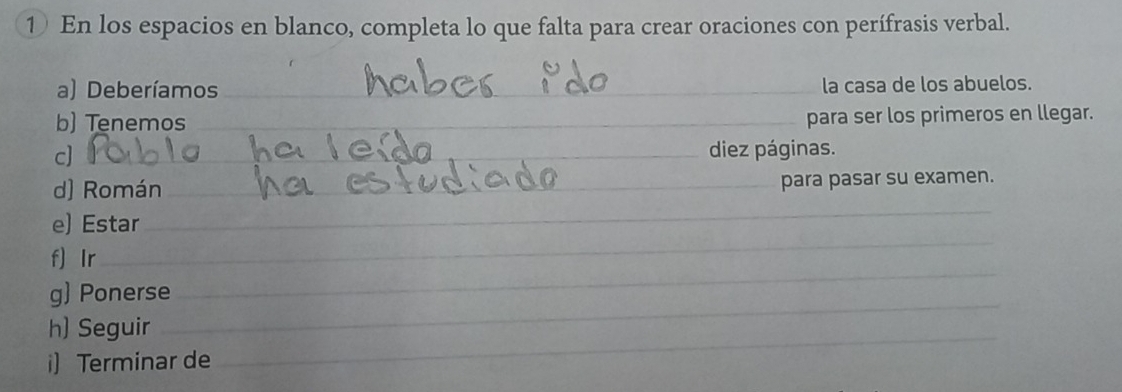 1 En los espacios en blanco, completa lo que falta para crear oraciones con perífrasis verbal.
a) Deberíamos haber ido la casa de los abuelos.
b) Tenemos para ser los primeros en llegar.
c) Pablo ha leído diez páginas.
d) Román ha estudiado para pasar su examen.
e) Estar
f) Ir
g) Ponerse
h) Seguir
i) Terminar de